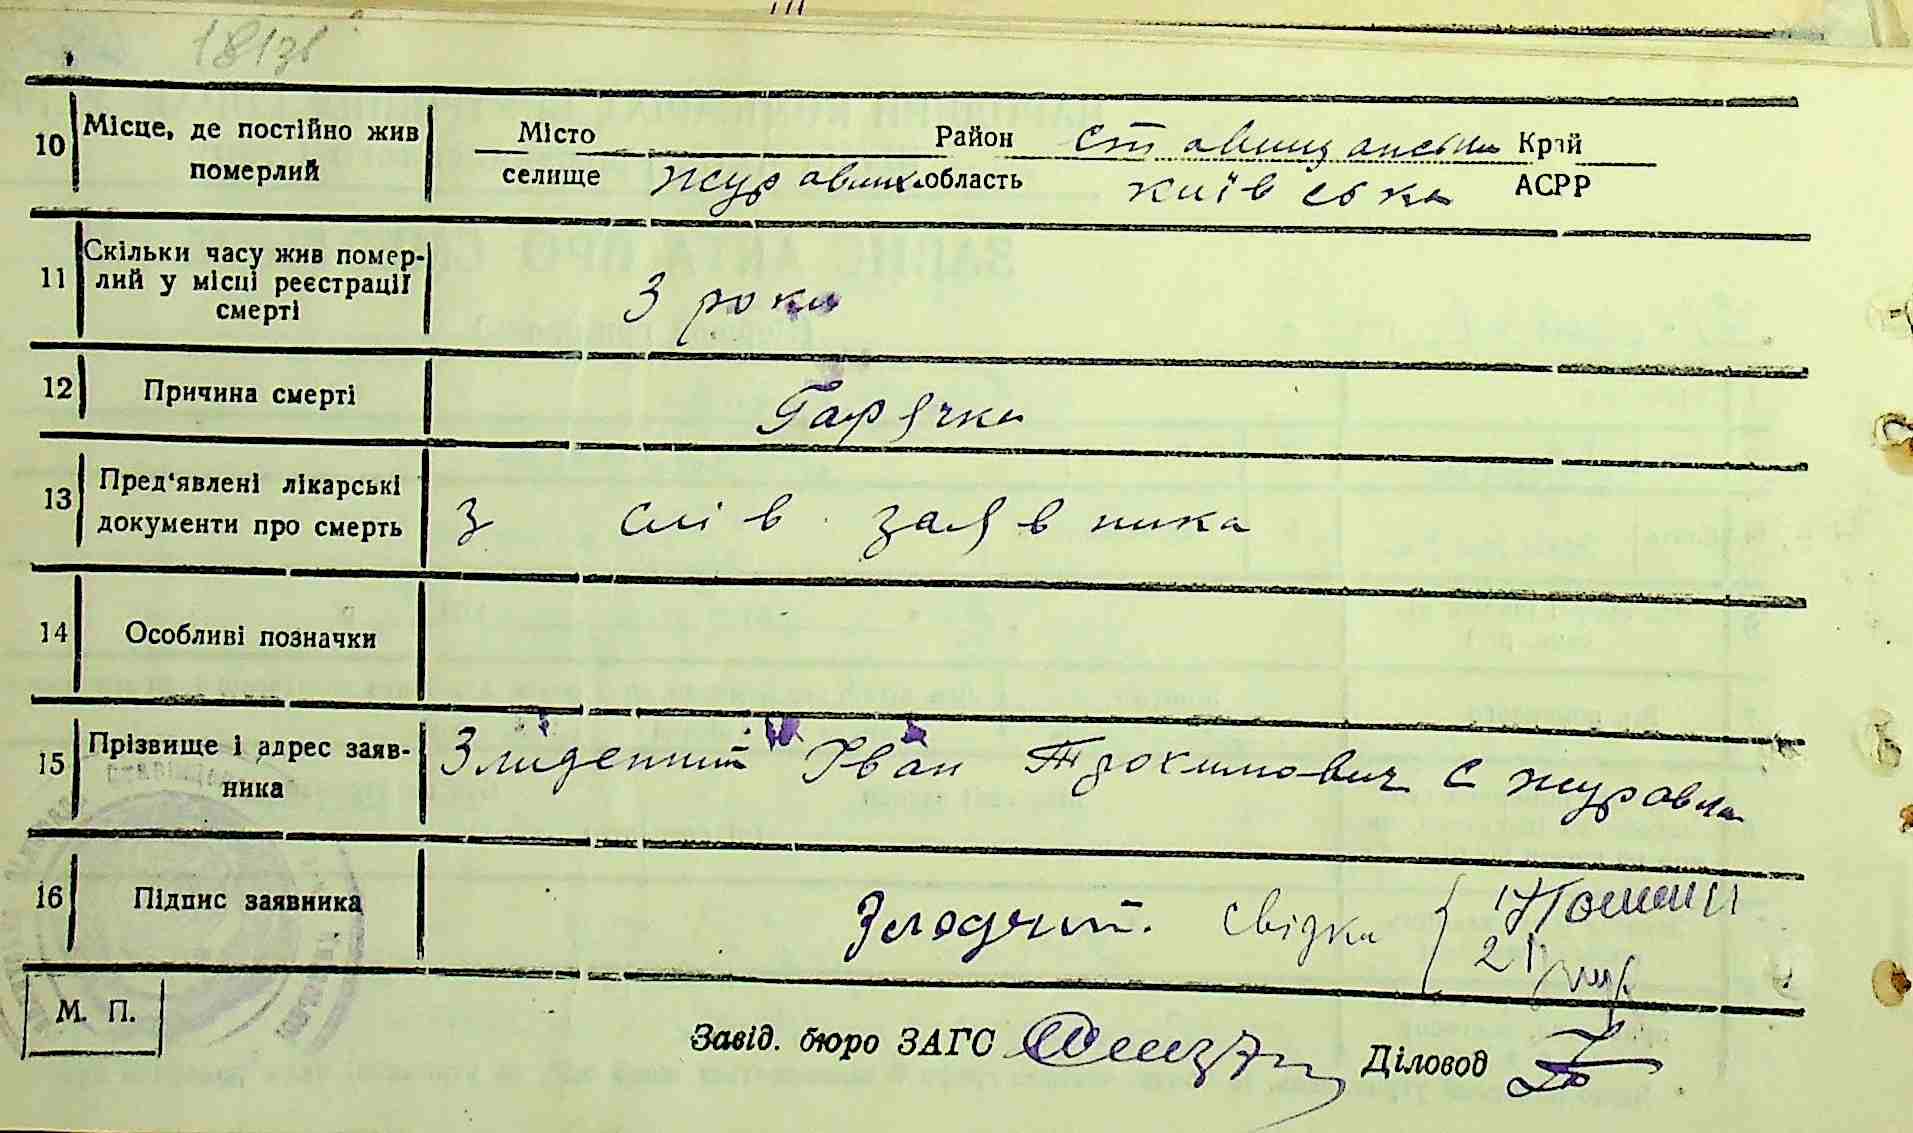 181зв
10 Місце, де постійно жив Місто Район Ставищанський Край
померлий селище Журавлиха область київська АСРР
11 Скільки часу жив помер-
лий у місці реєстрації 3 роки
смерті
12 Причина смерті Гарячка
13 Пред'явлені лікарські
документи про смерть З слів заявника
14 Особливі позначки
15 Прізвище і адрес заяв- Злиденний Іван Трохимович с журавлиха
ника
16 Підпис заявника свідки 1
2
М. П.
Завід. бюро ЗАГС Діловод